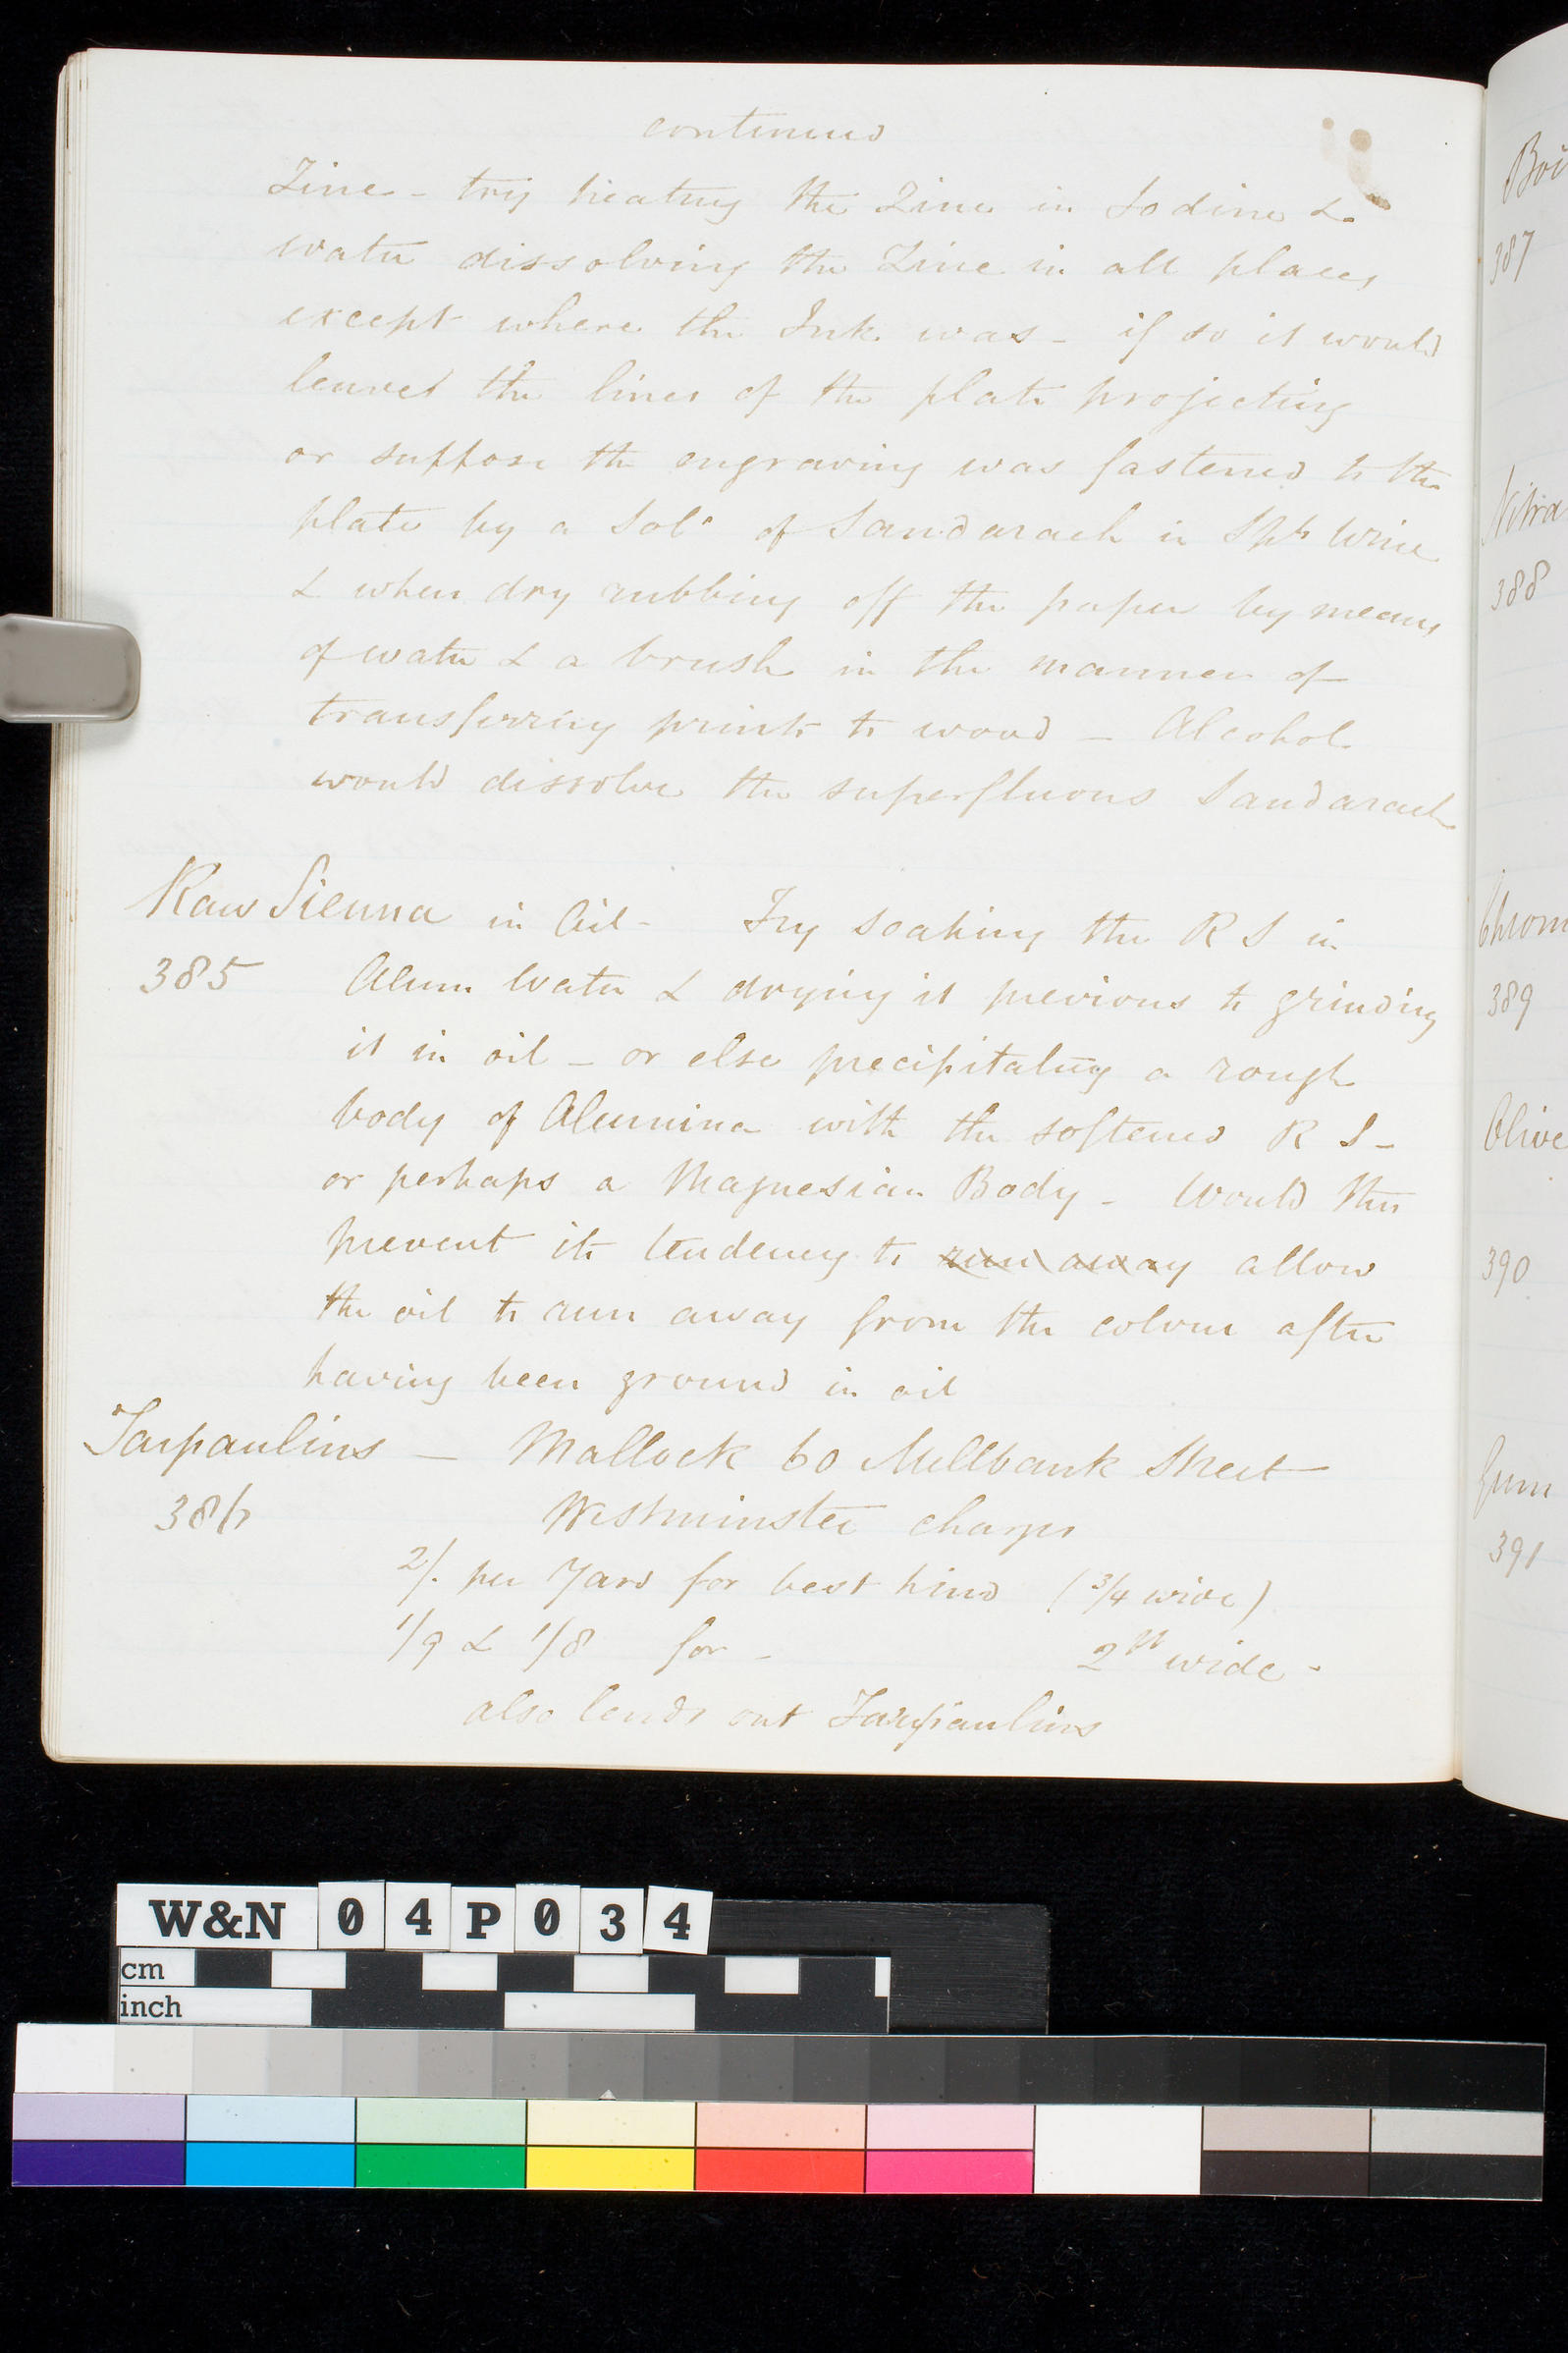 continued
Zinc - try heating the Zinc in Iodine &
water dissolving the Zinc in all places
except where the Ink was - if so it would
leave the lines of the plate projecting
or suppose the engraving was fastened to the
plate by a Sol. of Sandarach in Spts Wine
& when dry rubbing off the paper by means
of water & a brush in the manner of
transferring prints to wood - Alcohol
would dissolve the superfluous Sandarach
Raw Sienna in Oil - Try soaking the R S in
385 Alum Water & drying it previous to grinding
it in oil - or else precipitating a rough
body of Alumina with the softened R S -
or perhaps a Magnesian Body - Would this
prevent its tendency to run away allow
the oil to run away from the colour after
having been ground in oil
Tarpaulins - Mallock 60 Millbank Street
386 Westminster charges
2/. per Yard for best kind (3/4 wide)
1/9 & 1/8 for - 2ft wide -
also lends out Tarpaulins
Boi
387
Nitra
388
Chrom
389
Olive
390
Gum
391
W&N 04P034
cm
inch